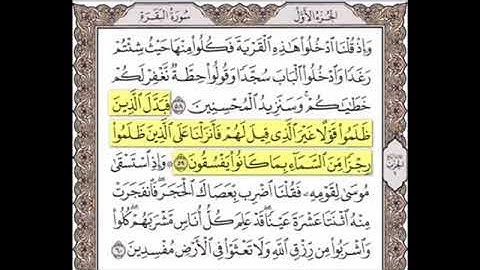 الجزء الأول
سورة البقرة
وَإِذْ قُلْنَا ٱدْخُلُوا۟ هَٰذِهِ ٱلْقَرْيَةَ فَكُلُوا۟ مِنْهَا حَيْثُ شِئْتُمْ
رَغَدًا وَٱدْخُلُوا۟ ٱلْبَابَ سُجَّدًا وَقُولُوا۟ حِطَّةٌ نَّغْفِرْ لَكُمْ
خَطَٰيَٰكُمْ ۚ وَسَنَزِيدُ ٱلْمُحْسِنِينَ ٥٨ فَبَدَّلَ ٱلَّذِينَ
ظَلَمُوا۟ قَوْلًا غَيْرَ ٱلَّذِى قِيلَ لَهُمْ فَأَنزَلْنَا عَلَى ٱلَّذِينَ ظَلَمُوا۟
رِجْزًا مِّنَ ٱلسَّمَآءِ بِمَا كَانُوا۟ يَفْسُقُونَ ٥٩ ۞ وَإِذِ ٱسْتَسْقَىٰ
مُوسَىٰ لِقَوْمِهِۦ فَقُلْنَا ٱضْرِب بِّعَصَاكَ ٱلْحَجَرَ ۖ فَٱنفَجَرَتْ
مِنْهُ ٱثْنَتَا عَشْرَةَ عَيْنًا ۖ قَدْ عَلِمَ كُلُّ أُنَاسٍ مَّشْرَبَهُمْ ۖ كُلُوا۟
وَٱشْرَبُوا۟ مِن رِّزْقِ ٱللَّهِ وَلَا تَعْثَوْا۟ فِى ٱلْأَرْضِ مُفْسِدِينَ ٦٠